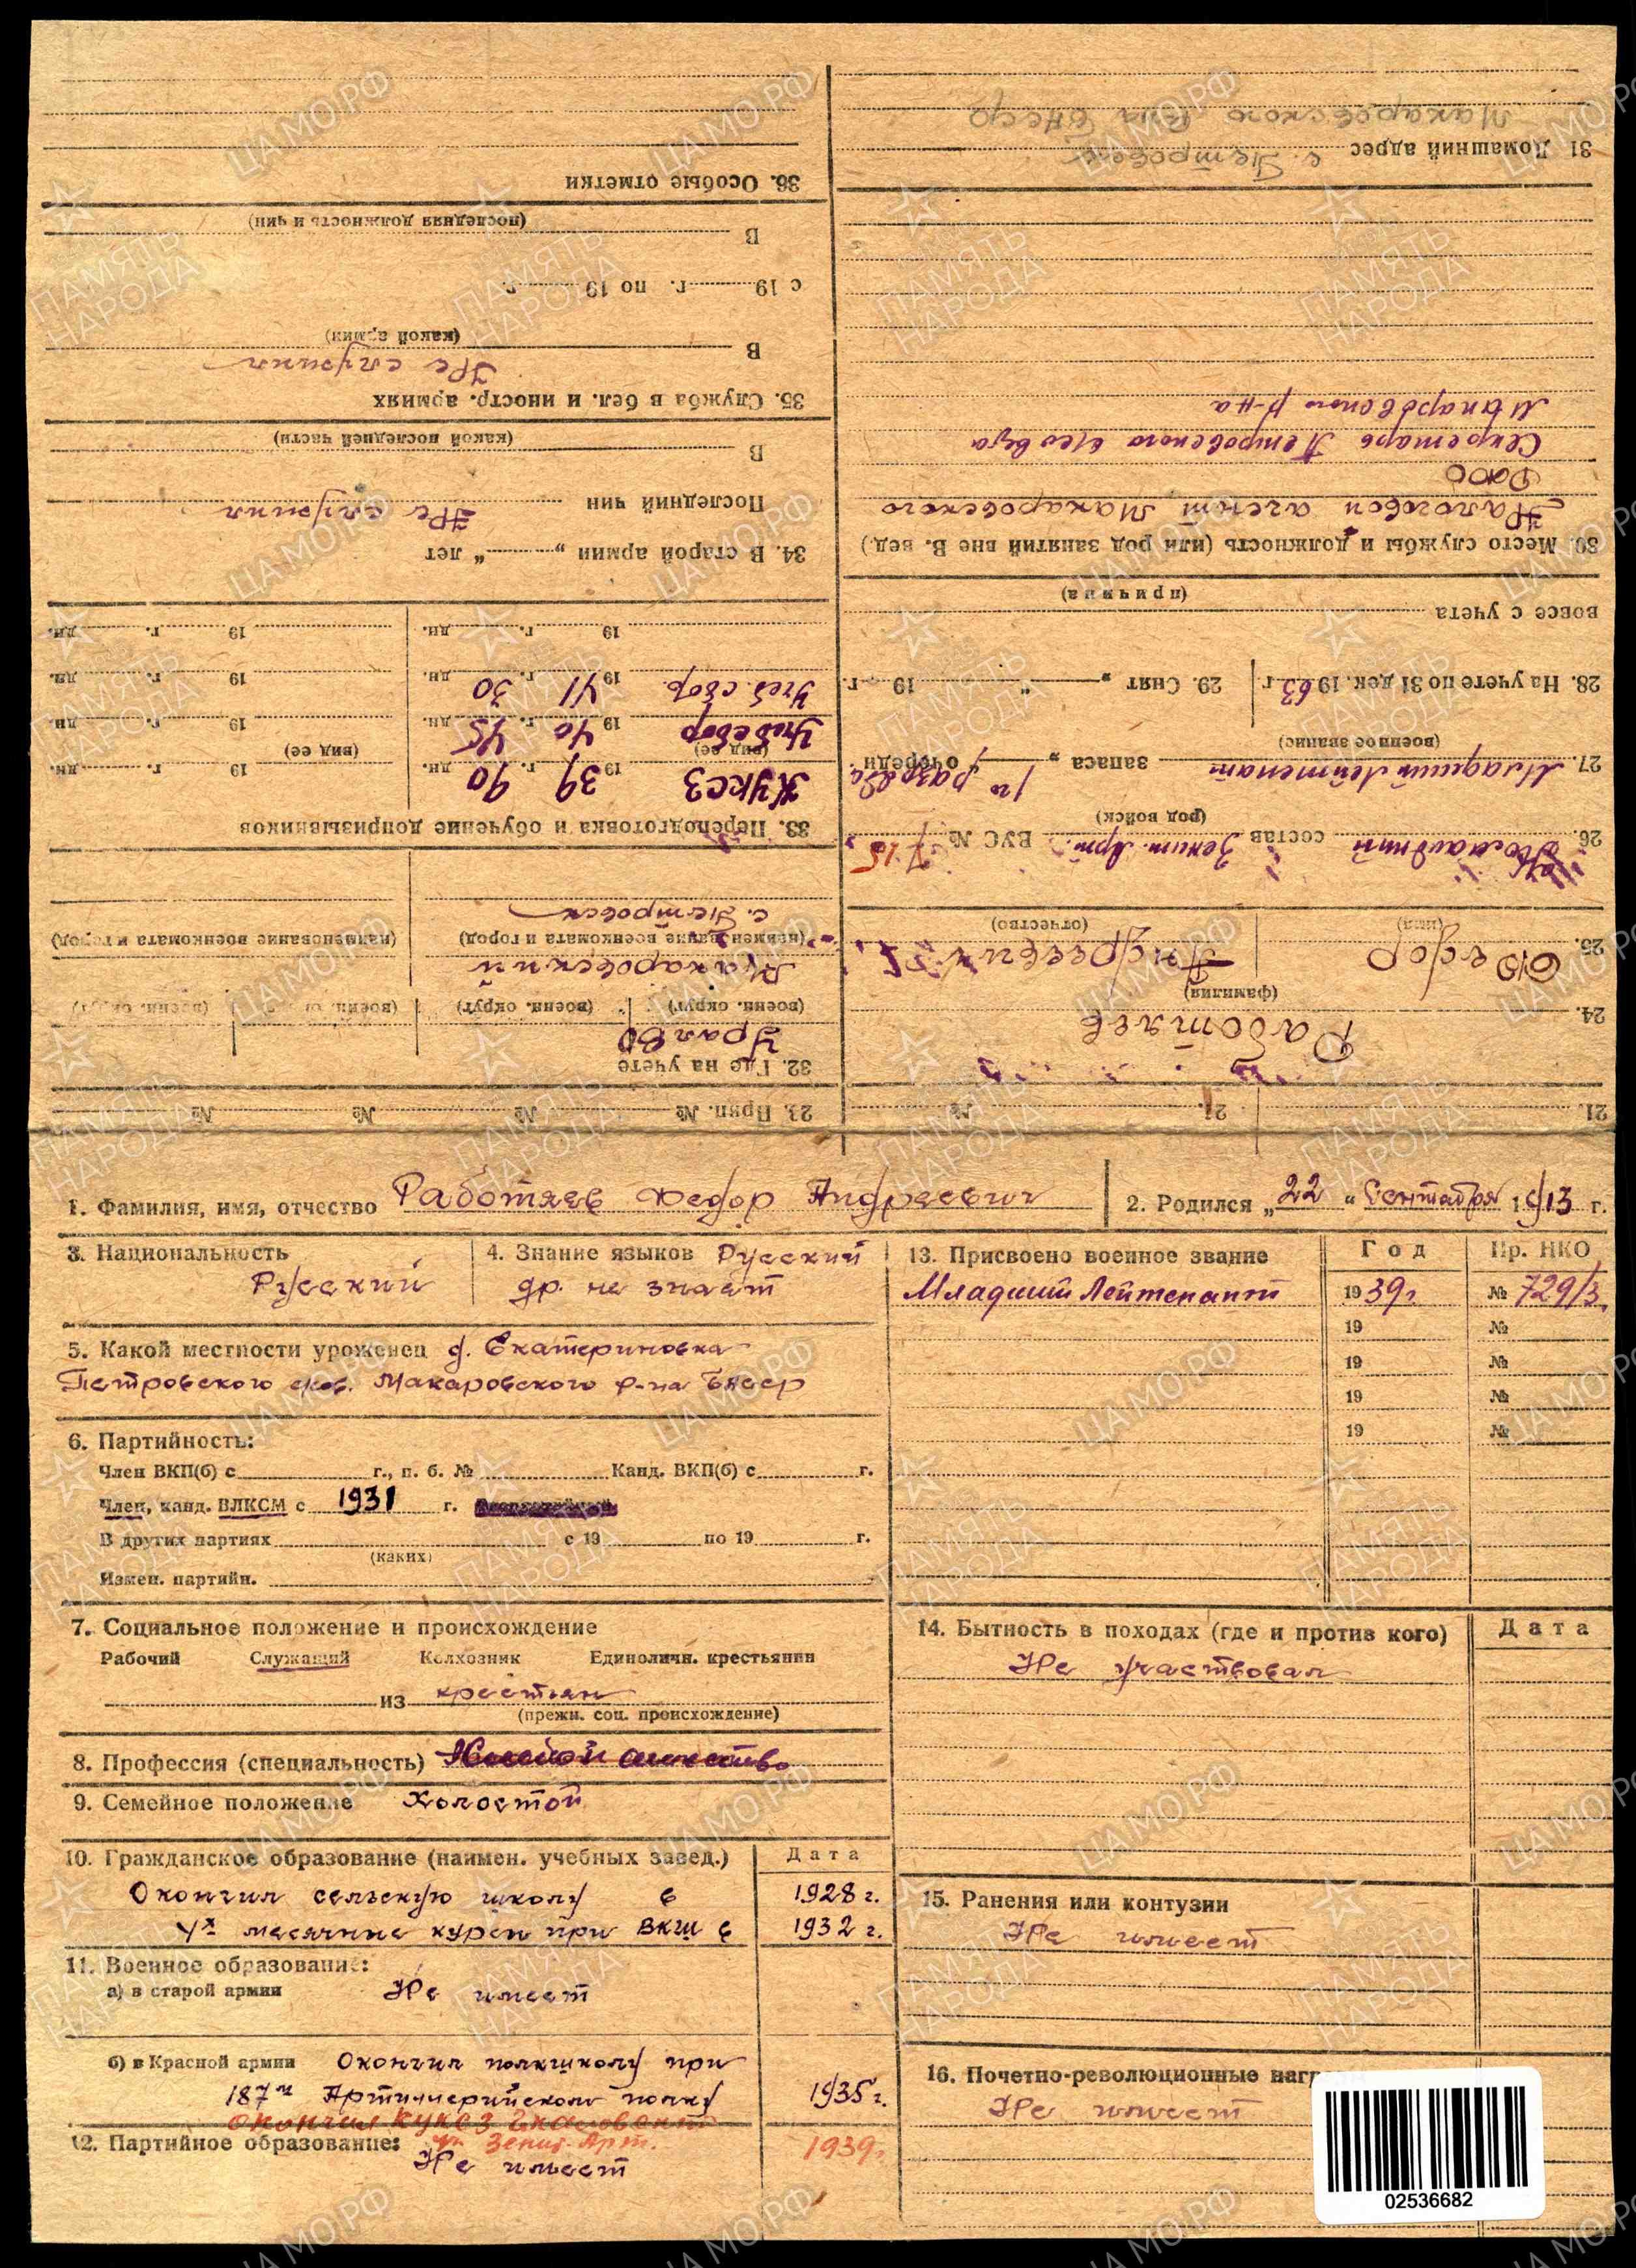 1. Фамилия, имя, отчество Работяев Федор Андреевич
2. Родился „22“ Сентября 1913 г.
3. Национальность Русский
4. Знание языков Русский
др. не знает
5. Какой местности уроженец д. Екатериновка
Петровского с/сов. Макаровского р-на БАССР
6. Партийность:
Член ВКП(б) с г., п. б. № Канд. ВКП(б) с г.
Член, канд. ВЛКСМ с 1931 г.
В других партиях с 19 по 19 г.
(каких)
Измен. партийн.
7. Социальное положение и происхождение
Рабочий Служащий Колхозник Единоличн. крестьянин
из крестьян
(прежн. соц. происхождение)
8. Профессия (специальность)
9. Семейное положение Холостой
10. Гражданское образование (наимен. учебных завед.) Дата
Окончил сельскую школу в 1928 г.
4х месячные курсы при ВКШ в 1932 г.
11. Военное образование:
а) в старой армии Не имеет
б) в Красной армии Окончил полкшколу при
187м Артиллерийском полку 1935 г.
окончил КУКСЗ
Зенит. Арт. 1939 г.
12. Партийное образование:
Не имеет
13. Присвоено военное звание Год Пр. НКО
Младший Лейтенант 1939 г. № 729/3.
19 №
19 №
19 №
19 №
14. Бытность в походах (где и против кого) Дата
Не участвовал
15. Ранения или контузии
Не имеет
16. Почетно-революционные нагр
Не имеет
02536682
21. 21. №
23. Прип. № № № №
Работяев
24.
(фамилия)
25. Федор Андреевич
(имя) (отчество)
26. Младший состав Зенит. Арт. ВУС № 15
(род войск)
27. Младший Лейтенант запаса „ 1го разряда очереди
(военное звание)
28. На учете по 31 дек. 1963 г. 29. Снят „ “ 19 г.
вовсе с учета
(причина)
30. Место службы и должность (или род занятий вне В. вед.)
Налоговой агент Макаровского
РайФО
Секретарь Петровского с/совета
Макаровского р-на
31 Домашний адрес с. Петровск
Макаровского р-на БАССР
32. Где на учете
УралВО
(военн. округ) (военн. округ) (военн. округ) (военн. округ)
Макаровский
(наименование военкомата и город) (наименование военкомата и город)
с. Петровск
33. Переподготовка и обучение допризывников
КУКСЗ 1939 г. 90 дн. 19 г. дн.
(вид ее) (вид ее)
Учеб сбор 1940 г. 45 дн. 19 г. дн.
Учеб. сбор. 1941 г. 30 дн. 19 г. дн.
19 г. дн. 19 г. дн.
34. В старой армии „ “ лет
Последний чин Не служил
В
(какой последней части)
35. Служба в бел. и иностр. армиях
Не служил
В
(какой армии)
с 19 г. по 19 г.
В
(последняя должность и чин)
36. Особые отметки
ЦАМО.РФ
ПАМЯТЬ
НАРОДА